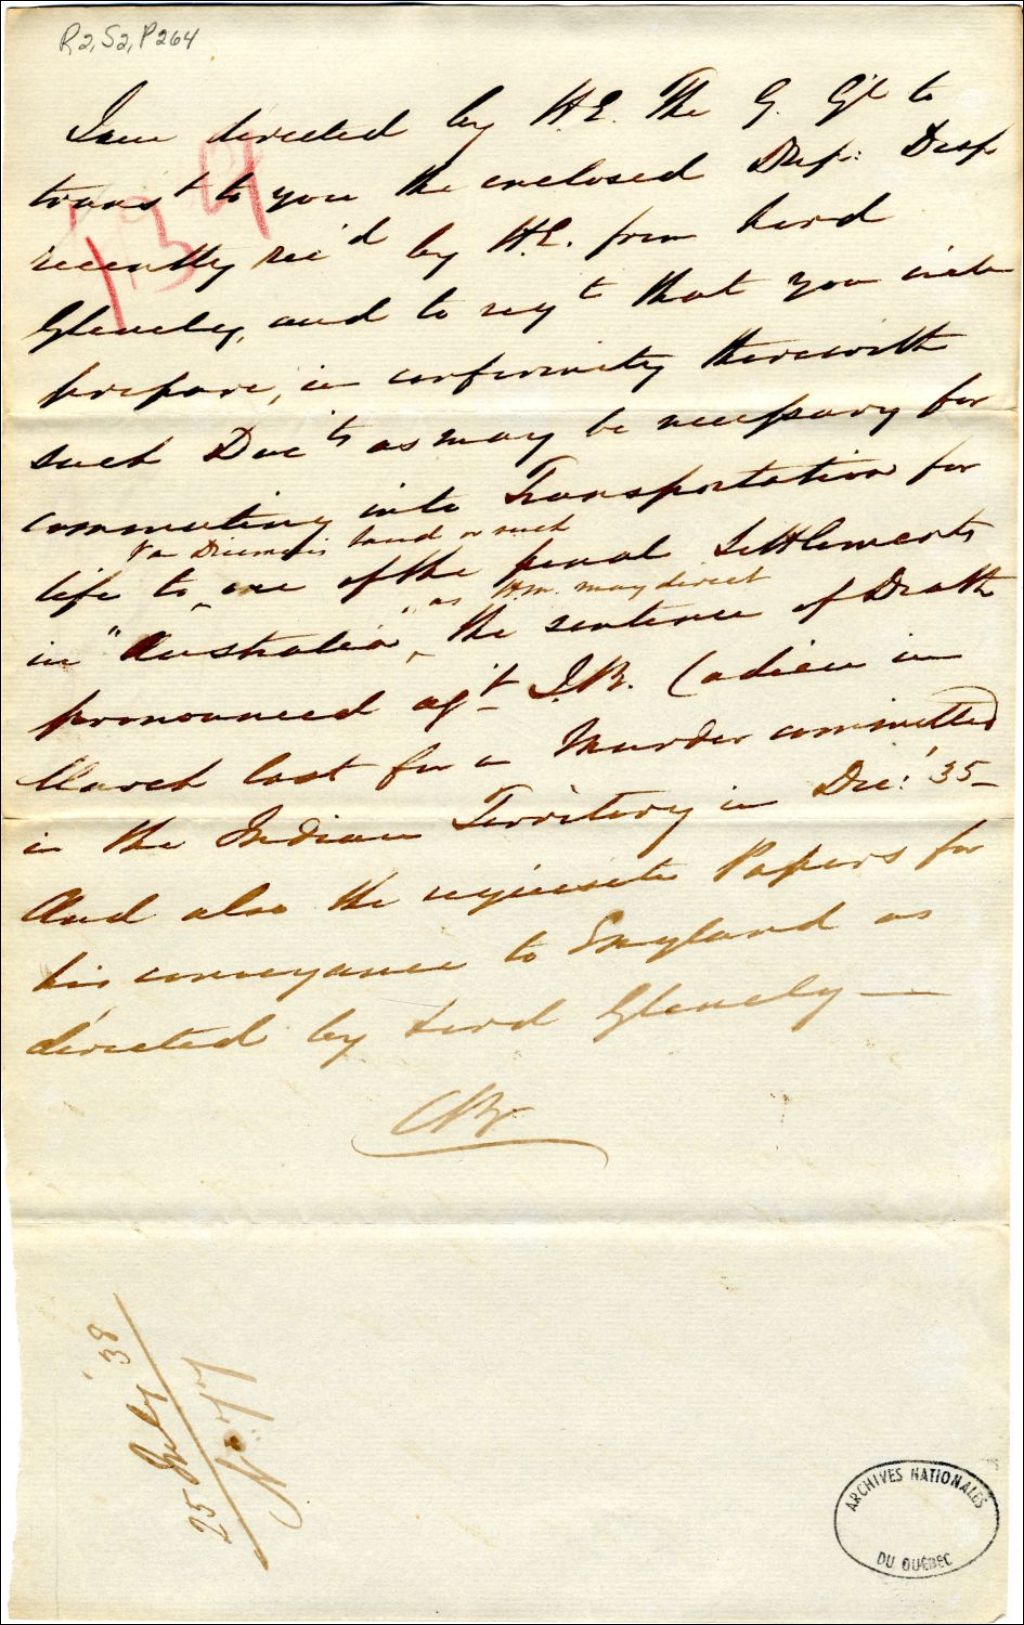 R2, S2, P264
139
I am directed by H.E. The G. Gl to
transt to you the enclosed Desp
recently rec'd by H.E. from Lord
Glenelg, and to reqt that you will
prepare, in conformity therewith
such Docts as may be necessary for
commuting into Transportation for
Van Diemens land or such
life to one of the penal Settlements
as H.M. may direct
in "Australia" the sentence of Death
pronounced agt J.B. Cadieu in
March last for a Murder committed
in the Indian Territory in Dec: '35 -
And also the requisite Papers for
his conveyance to England as
directed by Lord Glenelg -
CB
25 July '38
No 77
ARCHIVES NATIONALES
DU QUÉBEC